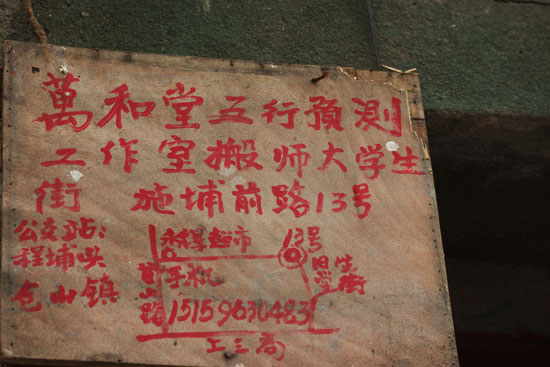 萬和堂五行預测
工作室搬师大学生
街 施埔前路13号
公交站：
程埔头
仓山镇
永得超市
13号
手机
15159630483
学生街
上三路